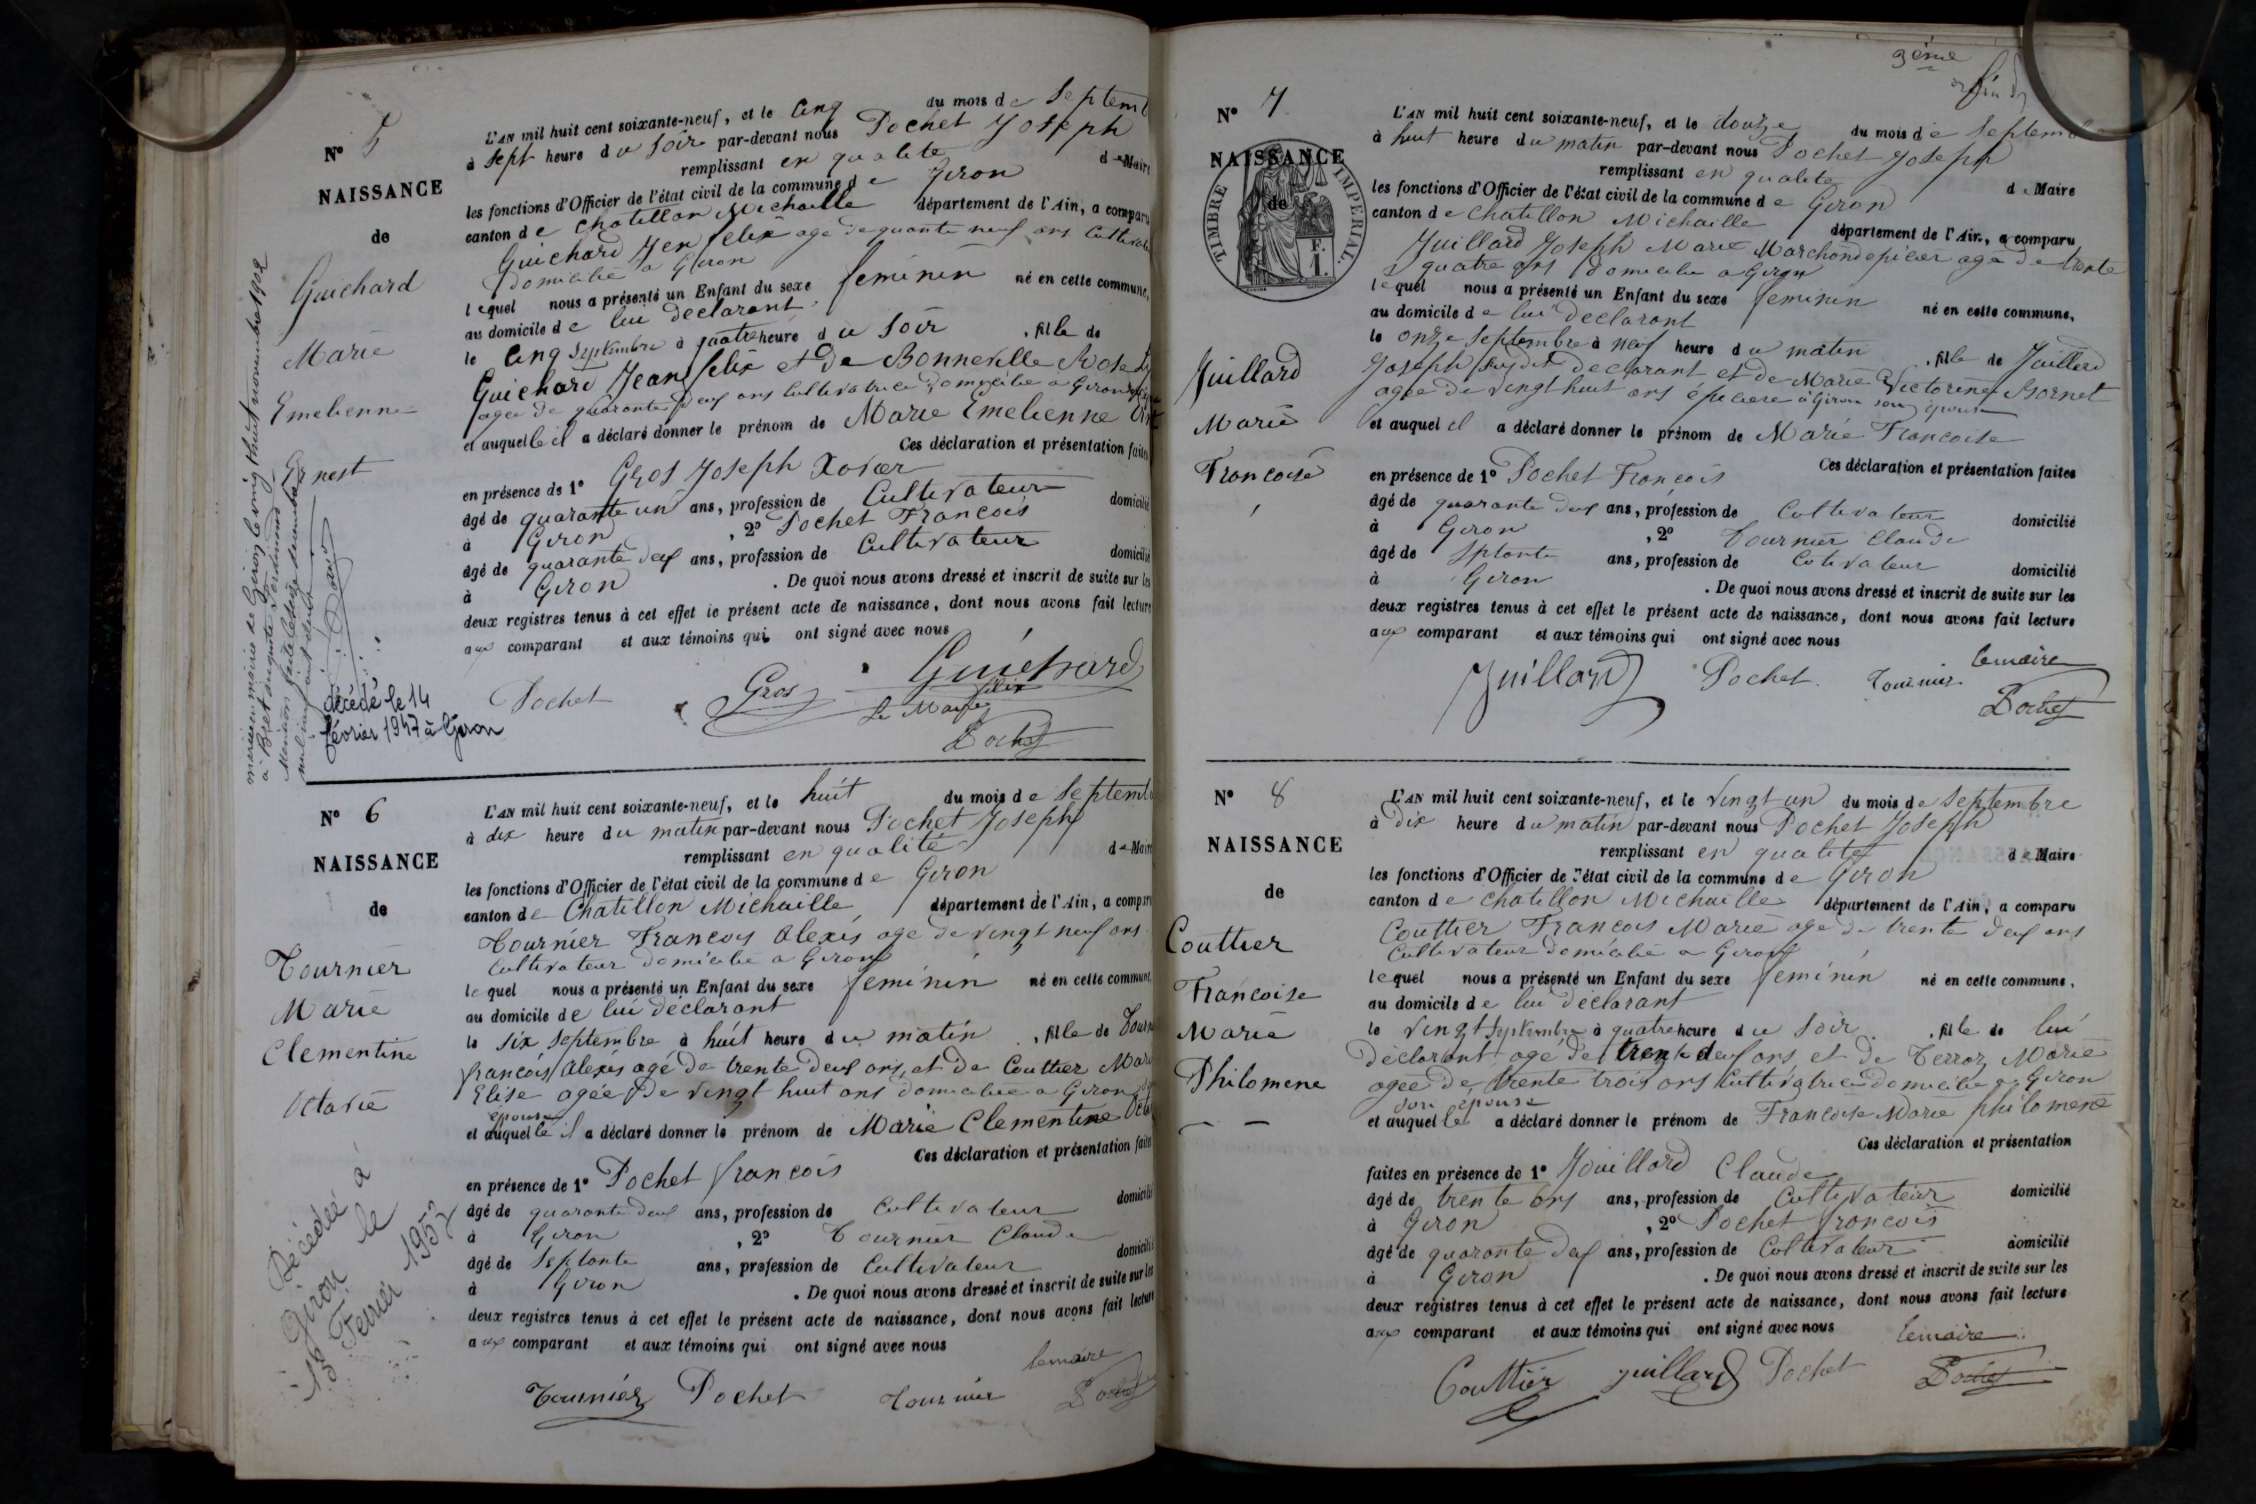 N° 5
NAISSANCE
de
Guichard
Marie
Emelienne
Ernest
décédé le 14
février 1947 à Giron
L'AN mil huit cent soixante-neuf, et le Cinq du mois de Septemb
à Sept heure du Soir par-devant nous Pochet Joseph
remplissant en qualité de Maire
les fonctions d'Officier de l'état civil de la commune de Giron
canton de Chatillon Michaille département de l'Ain, a comparu
Guichard Jean felix age de quarante neuf ans Cultivate
domicilie a Giron
lequel nous a présenté un Enfant du sexe feminin né en cette commune,
au domicile de lui declarant
le Cinq Septembre à quatre heure du Soir, fille de
Guichard Jean felix et de Bonneville Rose
agee de quarante deux ans Cultivatrice domicilie a Giron
et auquel le il a déclaré donner le prénom de Marie Emelienne
Ces déclaration et présentation faites
en présence de 1° Gros Joseph Xavier
âgé de quarante un ans, profession de Cultivateur domicilié
à Giron, 2° Pochet Francois
âgé de quarante deux ans, profession de Cultivateur domicilié
à Giron. De quoi nous avons dressé et inscrit de suite sur les
deux registres tenus à cet effet le présent acte de naissance, dont nous avons fait lecture
aux comparant et aux témoins qui ont signé avec nous
Pochet Gros Guichard
felix
Le Maire
Pochet
N° 6
NAISSANCE
de
Tournier
Marie
Clementine
Octavie
Décédée à
Giron le
15 Fevrier 1952
L'AN mil huit cent soixante-neuf, et le huit du mois de Septemb
à dix heure du matin par-devant nous Pochet Joseph
remplissant en qualité de Maire
les fonctions d'Officier de l'état civil de la commune de Giron
canton de Chatillon Michaille département de l'Ain, a comparu
Tournier Francois Alexis age de vingt neuf ans
Cultivateur domicilie a Giron
lequel nous a présenté un Enfant du sexe feminin né en cette commune,
au domicile de lui déclarant
le six Septembre à huit heure du matin, fille de Tourn
francois Alexis agé de trente deux ans, et de Couttier Marie
Elise agée de vingt huit ans domicilie a Giron
epouse
et auquel le il a déclaré donner le prénom de Marie Clementine Octa
Ces déclaration et présentation faites
en présence de 1° Pochet francois
âgé de quarante deux ans, profession de Cultivateur domicilié
à Giron, 2° Tournier Claude
âgé de Septante ans, profession de Cultivateur domicilié
à Giron. De quoi nous avons dressé et inscrit de suite sur les
deux registres tenus à cet effet le présent acte de naissance, dont nous avons fait lecture
aux comparant et aux témoins qui ont signé avec nous
lemaire
Tournier Pochet Tournier Pochet
3ème
N° 7
NAISSANCE
de
TIMBRE IMPERIAL.
Juillard
Marie
Francoise
L'AN mil huit cent soixante-neuf, et le douze du mois de Septembre
à huit heure du matin par-devant nous Pochet Joseph
remplissant en qualite de Maire
les fonctions d'Officier de l'état civil de la commune de Giron
canton de Chatillon Michaille département de l'Ain, a comparu
Juillard Joseph Marie Marchand epicier age de trente
quatre ans domicilie a Giron
lequel nous a présenté un Enfant du sexe feminin né en cette commune,
au domicile de lui Declarant
le onze Septembre à neuf heure du matin, fille de Juillard
Joseph susdit declarant et de Marie Victorine Bornet
agée de vingt huit ans épiciere à Giron son epouse
et auquel il a déclaré donner le prénom de Marie Francoise
Ces déclaration et présentation faites
en présence de 1° Pochet Francois
âgé de quarante deux ans, profession de Cultivateur domicilié
à Giron, 2° Tournier Claude
âgé de Septante ans, profession de Cultivateur domicilié
à Giron. De quoi nous avons dressé et inscrit de suite sur les
deux registres tenus à cet effet le présent acte de naissance, dont nous avons fait lecture
aux comparant et aux témoins qui ont signé avec nous
lemaire
Juillard Pochet Tournier
Pochet
N° 8
NAISSANCE
de
Couttier
Francoise
Marie
Philomene
L'AN mil huit cent soixante-neuf, et le Vingt un du mois de Septembre
à Dix heure du matin par-devant nous Pochet Joseph
remplissant en qualité de Maire
les fonctions d'Officier de l'état civil de la commune de Giron
canton de Chatillon Michaille département de l'Ain, a comparu
Couttier Francois Marie age de trente deux ans
Cultivateur domicilie a Giron
lequel nous a présenté un Enfant du sexe feminin né en cette commune,
au domicile de lui declarant
le vingt Septembre à quatre heure du Soir, fille de lui
Déclarant agé de trente deux ans et de Terroz Marie
agee de trente trois ans Cultivatrice domicilie a Giron
son épouse
et auquel le a déclaré donner le prénom de Francoise Marie philomene
Ces déclaration et présentation
faites en présence de 1° Jouillard Claude
âgé de trente ans ans, profession de Cultivateur domicilié
à Giron, 2° Pochet francois
âgé de quarante deux ans, profession de Cultivateur domicilié
à Giron. De quoi nous avons dressé et inscrit de suite sur les
deux registres tenus à cet effet le présent acte de naissance, dont nous avons fait lecture
aux comparant et aux témoins qui ont signé avec nous
lemaire
Couttier juillard Pochet Pochet